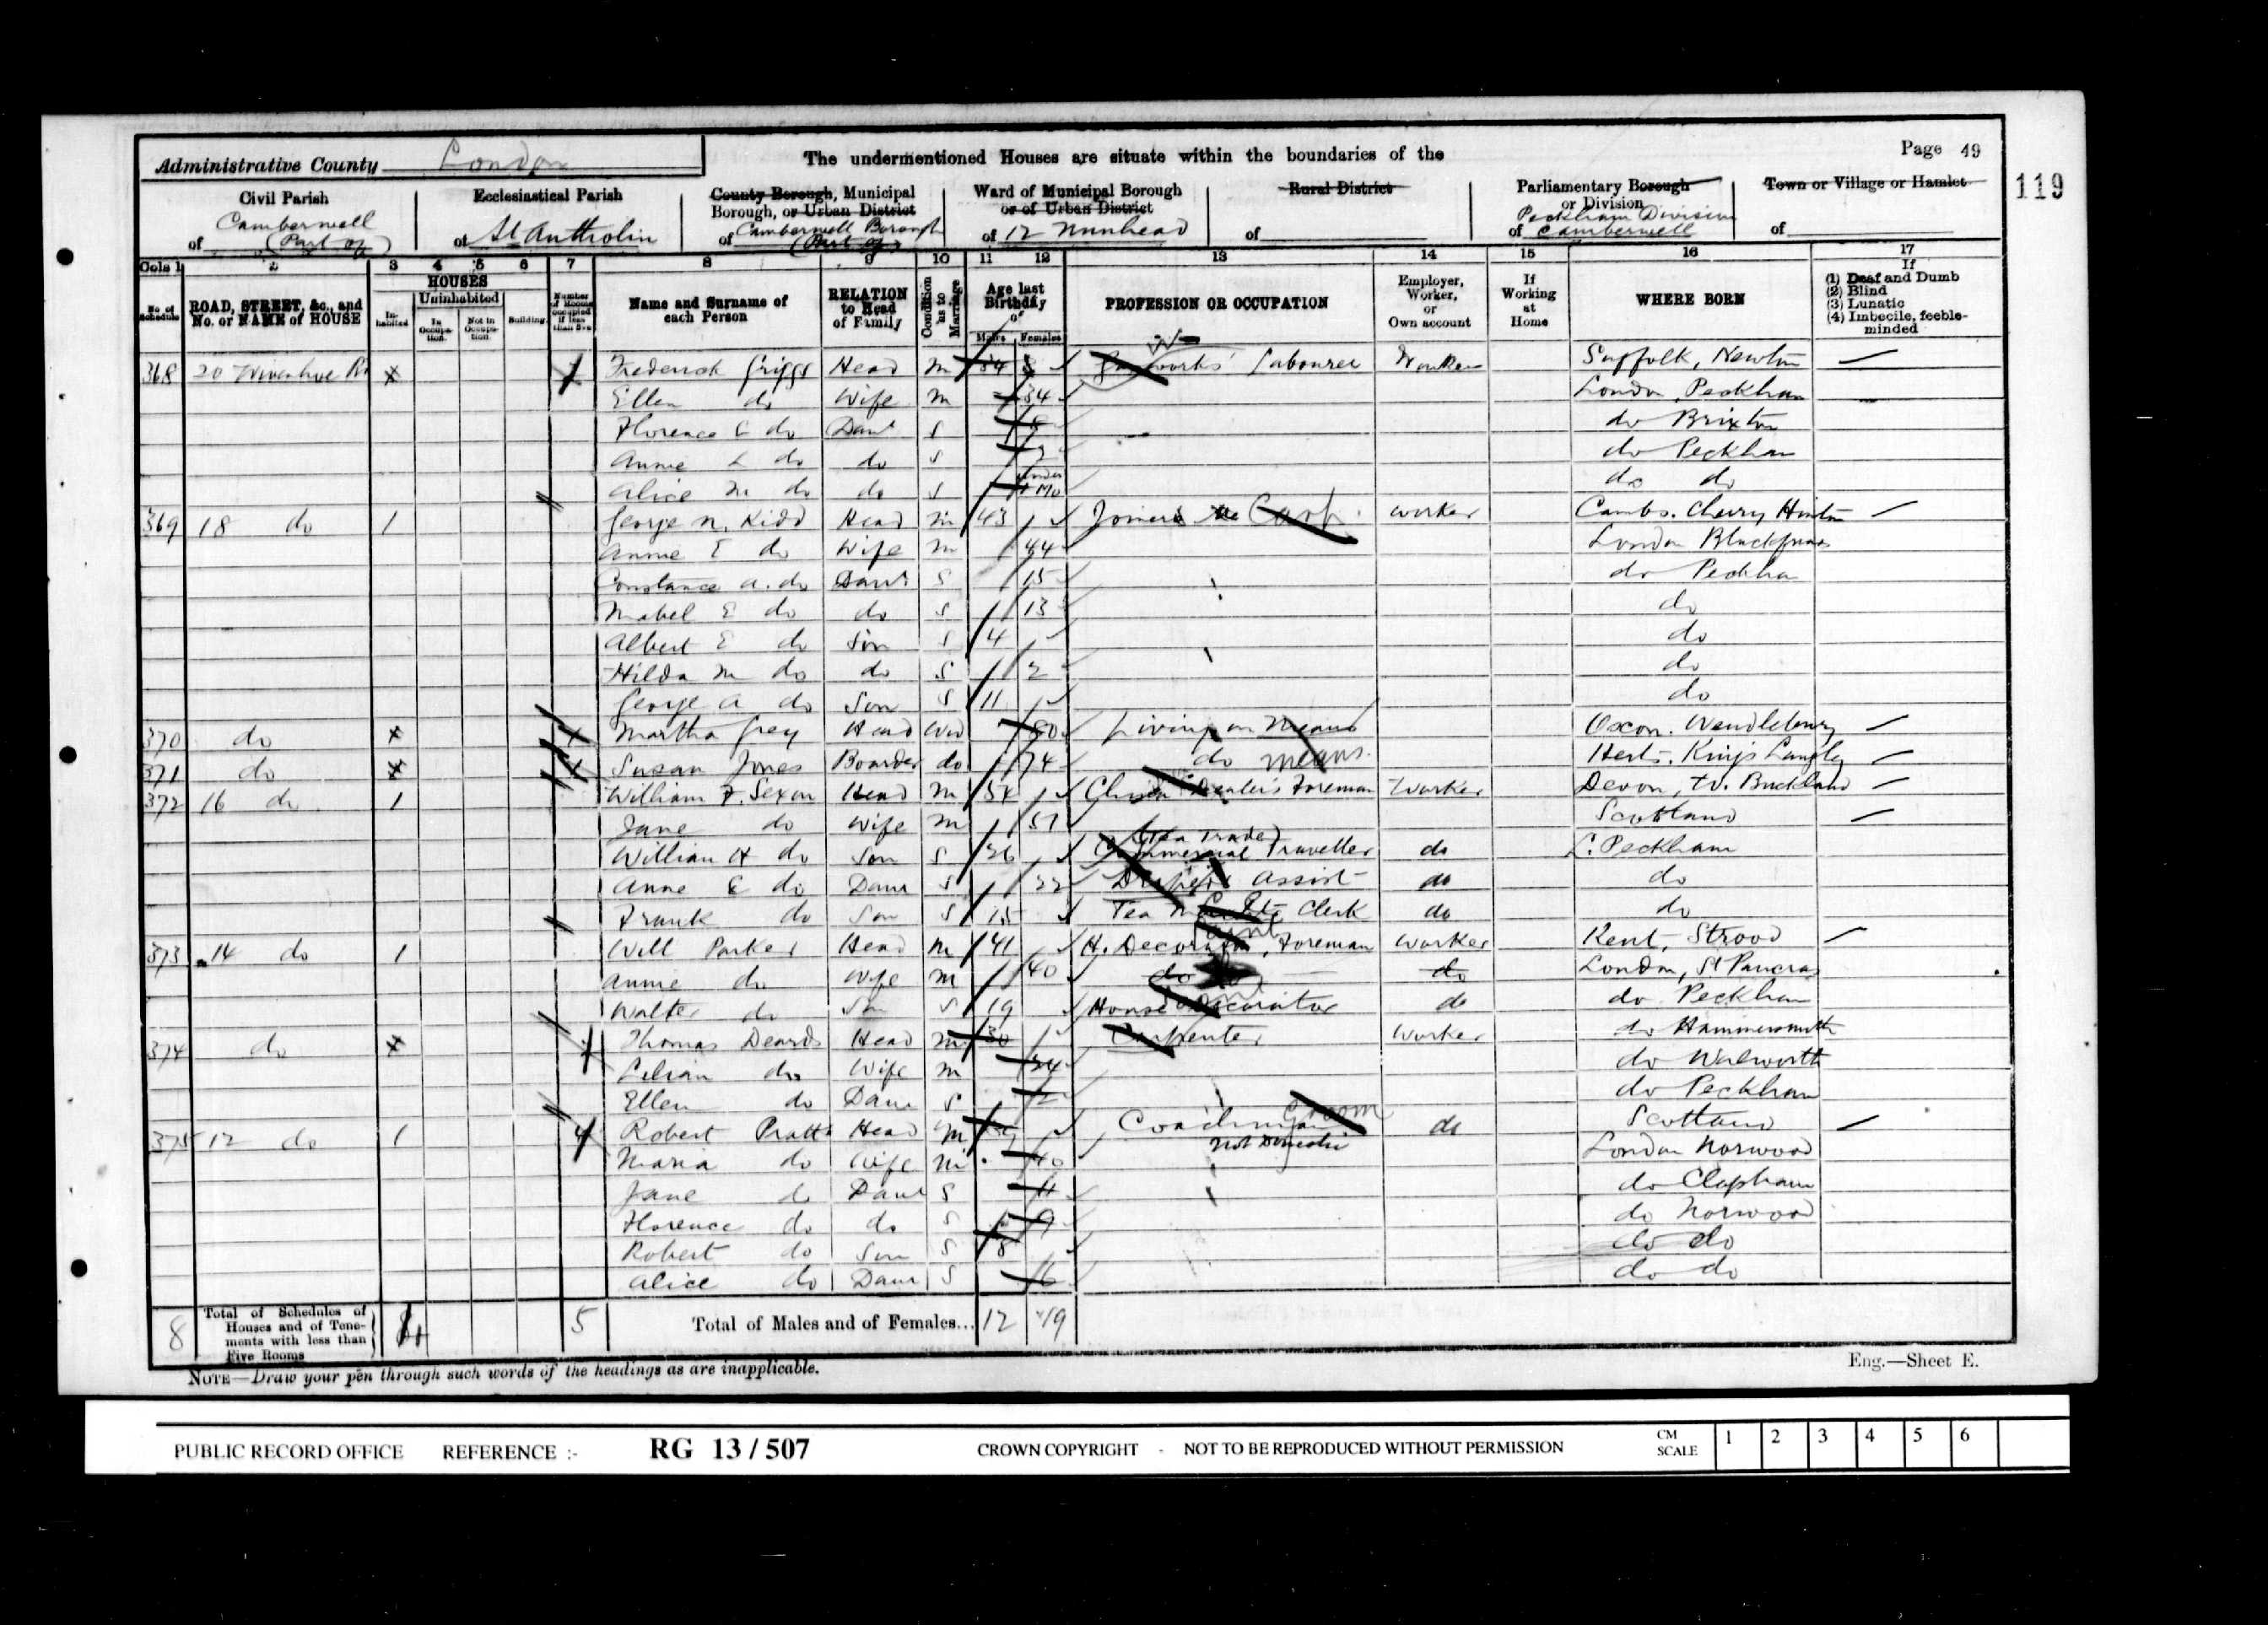 Administrative County London
The undermentioned Houses are situate within the boundaries of the
Page 49
119
Civil Parish
of Camberwell (Part of)
Ecclesiastical Parish
of St Antholin
County Borough, Municipal
Borough, or Urban District
of Camberwell Borough (Part of)
Ward of Municipal Borough
or of Urban District
of 12 Nunhead
Rural District
of
Parliamentary Borough
or Division
of Peckham Division Camberwell
Town or Village or Hamlet
of
Cols 1 2 3 4 5 6 7 8 9 10 11 12 13 14 15 16 17
No. of Schedule
ROAD, STREET, &c., and No. or NAME of HOUSE
HOUSES
Inhabited
Uninhabited
In Occupation.
Not in Occupation.
Building
Number of Rooms occupied if less than five
Name and Surname of each Person
RELATION to Head of Family
Condition as to Marriage
Age last Birthday of
Males Females
PROFESSION OR OCCUPATION
Employer, Worker, or Own account
If Working at Home
WHERE BORN
If
(1) Deaf and Dumb
(2) Blind
(3) Lunatic
(4) Imbecile, feeble-minded
368 20 Rd x Frederick Griggs Head M 34 Gasworks' Labourer Worker Suffolk, Newton
Ellen do Wife M 34 London Peckham
Florence E do Daur S do Brixton
Annie L do do S do Peckham
Alice M do do S under 1 Mo do do
369 18 do 1 George N. Kidd Head M 43 Joiner Carp. worker Cambs. Cherry Hinton
Annie E do Wife M 44 London Blackfriars
Constance A. do Daur S 15 do Peckham
Mabel E do do S 13 do
Albert E do Son S 4 do
Hilda M do do S 2 do
George A do Son S 11 do
370 do x Martha Grey Head Wid 80 Living on Means Oxon. Wendlebury
371 do x Susan Jones Boarder do 74 do means. Herts. Kings Langley
372 16 do 1 William F. Sexon Head M 54 China Dealers Foreman Worker Devon, W. Buckland
Jane do Wife M 51 Scotland
William H do Son S 26 Commercial Traveller (Tea Trade) do L. Peckham
Anne E do Daur S 22 Drapers Assist do do
Frank do Son S 15 Tea Clerk do do
373 14 do 1 Will Parker Head M 41 H. Decorator, Foreman Paint Worker Kent, Strood
Annie do Wife M 40 do do London, St Pancras
Walter do Son S 19 House Decorator do do Peckham
374 do x Thomas Deards Head M 30 Carpenter Worker do Hammersmith
Lilian do Wife M 24 do Walworth
Ellen do Daur S 2 do Peckham
375 12 do 1 4 Robert Pratt Head M Coachman Groom Not Domestic do Scotland
Maria do Wife M 40 London Norwood
Jane do Daur S 11 do Clapham
Florence do do S 9 do Norwood
Robert do Son S 8 do do
Alice do Daur S 6 do do
8 Total of Schedules of Houses and of Tenements with less than Five Rooms 4 5 Total of Males and of Females... 12 19
NOTE—Draw your pen through such words of the headings as are inapplicable.
Eng.—Sheet E.
PUBLIC RECORD OFFICE REFERENCE :- RG 13 / 507 CROWN COPYRIGHT - NOT TO BE REPRODUCED WITHOUT PERMISSION CM SCALE 1 2 3 4 5 6